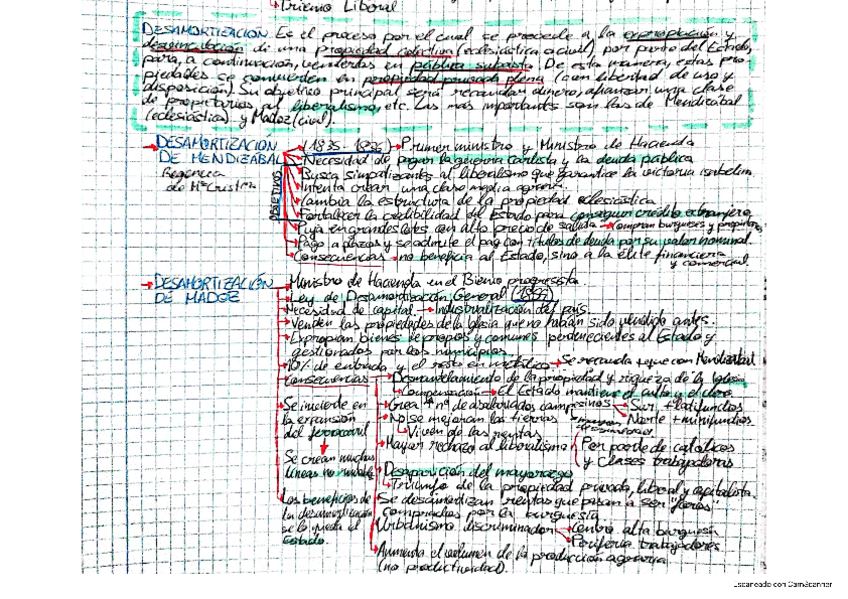 Trienio Liberal
DESAMORTIZACIÓN. Es el proceso por el cual se procede a la expropiación y
desvinculación de una propiedad colectiva (eclesiástica o civil), por parte del Estado,
para, a continuación, venderlas en pública subasta. De esta manera, estas pro
piedades se convierten en propiedad privada plena (con libertad de uso y
disposición). Su objetivo principal será recaudar dinero, afianzar una clase
de propietarios al liberalismo, etc. Las más importantes son las de Mendizábal
(eclesiástica) y Madoz (civil).
DESAMORTIZACIÓN DE MENDIZÁBAL
Regencia de Mª Cristina
OBJETIVOS
(1835-1836) → Primer ministro y Ministro de Hacienda
Necesidad de pagar la guerra carlista y la deuda pública
Busca simpatizantes al liberalismo que garantice la victoria isabelina.
Intenta crear una clase media agraria.
Cambia la estructura de la propiedad eclesiástica.
Fortalecer la credibilidad del Estado para conseguir crédito extranjero
Puja en grandes lotes con alto precio de salida → Compran burgueses y propietarios
Pago a plazos y se admite el pago con títulos de deuda por su valor nominal.
Consecuencias: no beneficia al Estado, sino a la élite financiera
y comercial.
DESAMORTIZACIÓN DE MADOZ
Ministro de Hacienda en el Bienio progresista
Ley de Desamortización General
Necesidad de capital → Industrialización del país.
Venden las propiedades de la Iglesia que no habían sido vendido antes.
Expropian bienes de propios y comunes pertenecientes al Estado y
gestionados por los municipios.
10% de entrada y el resto en metálico → Se recauda + que con Mendizábal
consecuencias → Desmantelamiento de la propiedad y riqueza de la Iglesia
Compensación → el Estado mantiene el culto y el clero.
Se invierte en
la expansión
del ferrocarril
Se crean muchas
líneas no rentables
Los beneficios de
la desamortización
se lo queda el
Estado.
Crea ↑ nº de asalariados campesinos
Sur: + latifundios
Norte: + minifundios
No se mejoran las tierras
Viven de las rentas
Mayor rechazo al liberalismo
Por parte de católicos
y clases trabajadoras
Desaparición del mayorazgo
Triunfo de la propiedad privada, liberal y capitalista.
Se desamortizan rentas que pasan a ser
compradas por la burguesía
Urbanismo discriminador
Centro alta burguesía
Periferia trabajadores
Aumenta el volumen de la producción agraria
(no productividad).
Escaneado con CamScanner